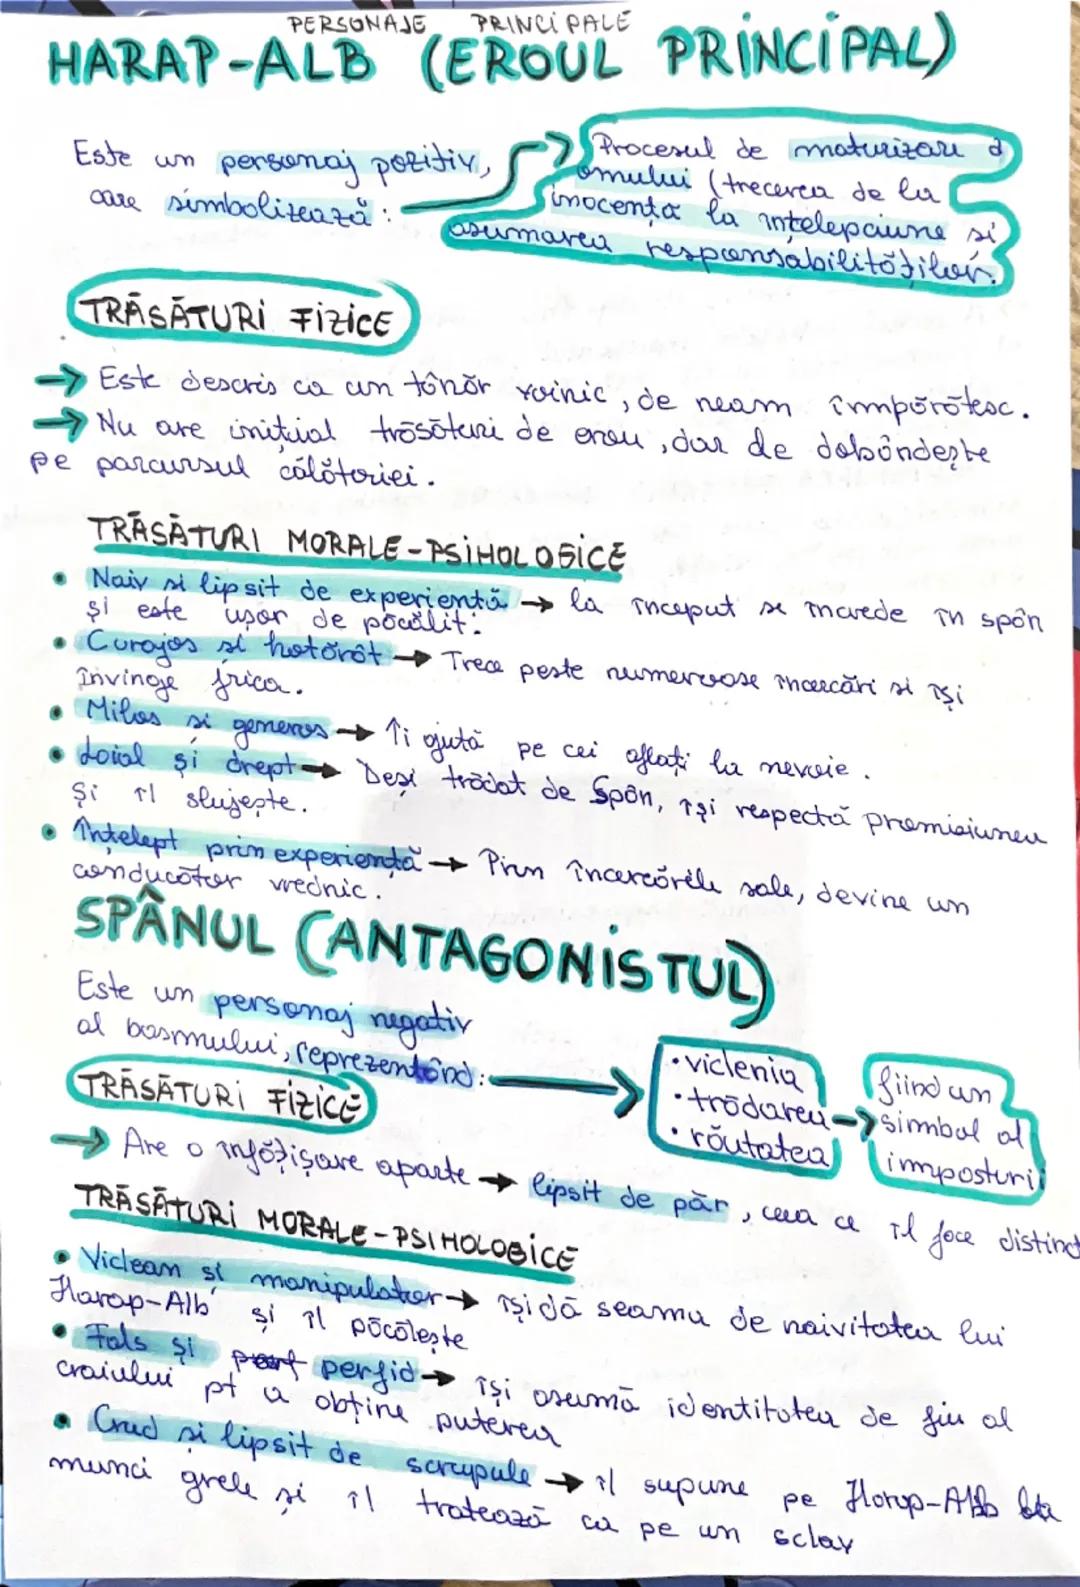 PERSONAJE PRINCIPALE
HARAP-ALB (EROUL PRINCIPAL)
Este un personaj pozitiv,
care simbolizează:
Procesul de maturizare a
omului (trecerea de la
inocență la înțelepciune și
asumarea responsabilităților.
TRĂSĂTURI FIZICE
→ Este descris ca un tânăr voinic, de neam împărătesc.
→ Nu are inițial trăsături de erou, dar le dobândește
pe parcursul călătoriei.
TRĂSĂTURI MORALE-PSIHOLOGICE
• Naiv si lipsit de experiență → la început se încrede în spân
și este ușor de păcălit.
• Curajos si hotărât → Trece peste numeroase încercări si își
învinge frica.
• Milos si generos → Îi ajută pe cei aflați la nevoie.
• Loial și drept → Deși trădat de Spân, își respectă promisiunea
Și îl slujește.
• Înțelept prin experiență → Prin încercările sale, devine un
conducător vrednic.
SPÂNUL (ANTAGONISTUL)
Este un personaj negativ
al basmului, reprezentând:
• viclenia
• trădarea
• răutatea
→ fiind un
simbol al
imposturii
TRĂSĂTURI FIZICE
→ Are o înfățișare aparte → lipsit de păr, ceea ce îl face distinct
TRĂSĂTURI MORALE-PSIHOLOGICE
• Viclean si manipulator → își dă seama de naivitatea lui
Harap-Alb și îl păcălește
• Fals și perfid → își asumă identitatea de fiu al
craiului pt a obține puterea
• Crud si lipsit de scrupule → îl supune pe Harap-Alb la
munci grele si îl tratează ca pe un sclav